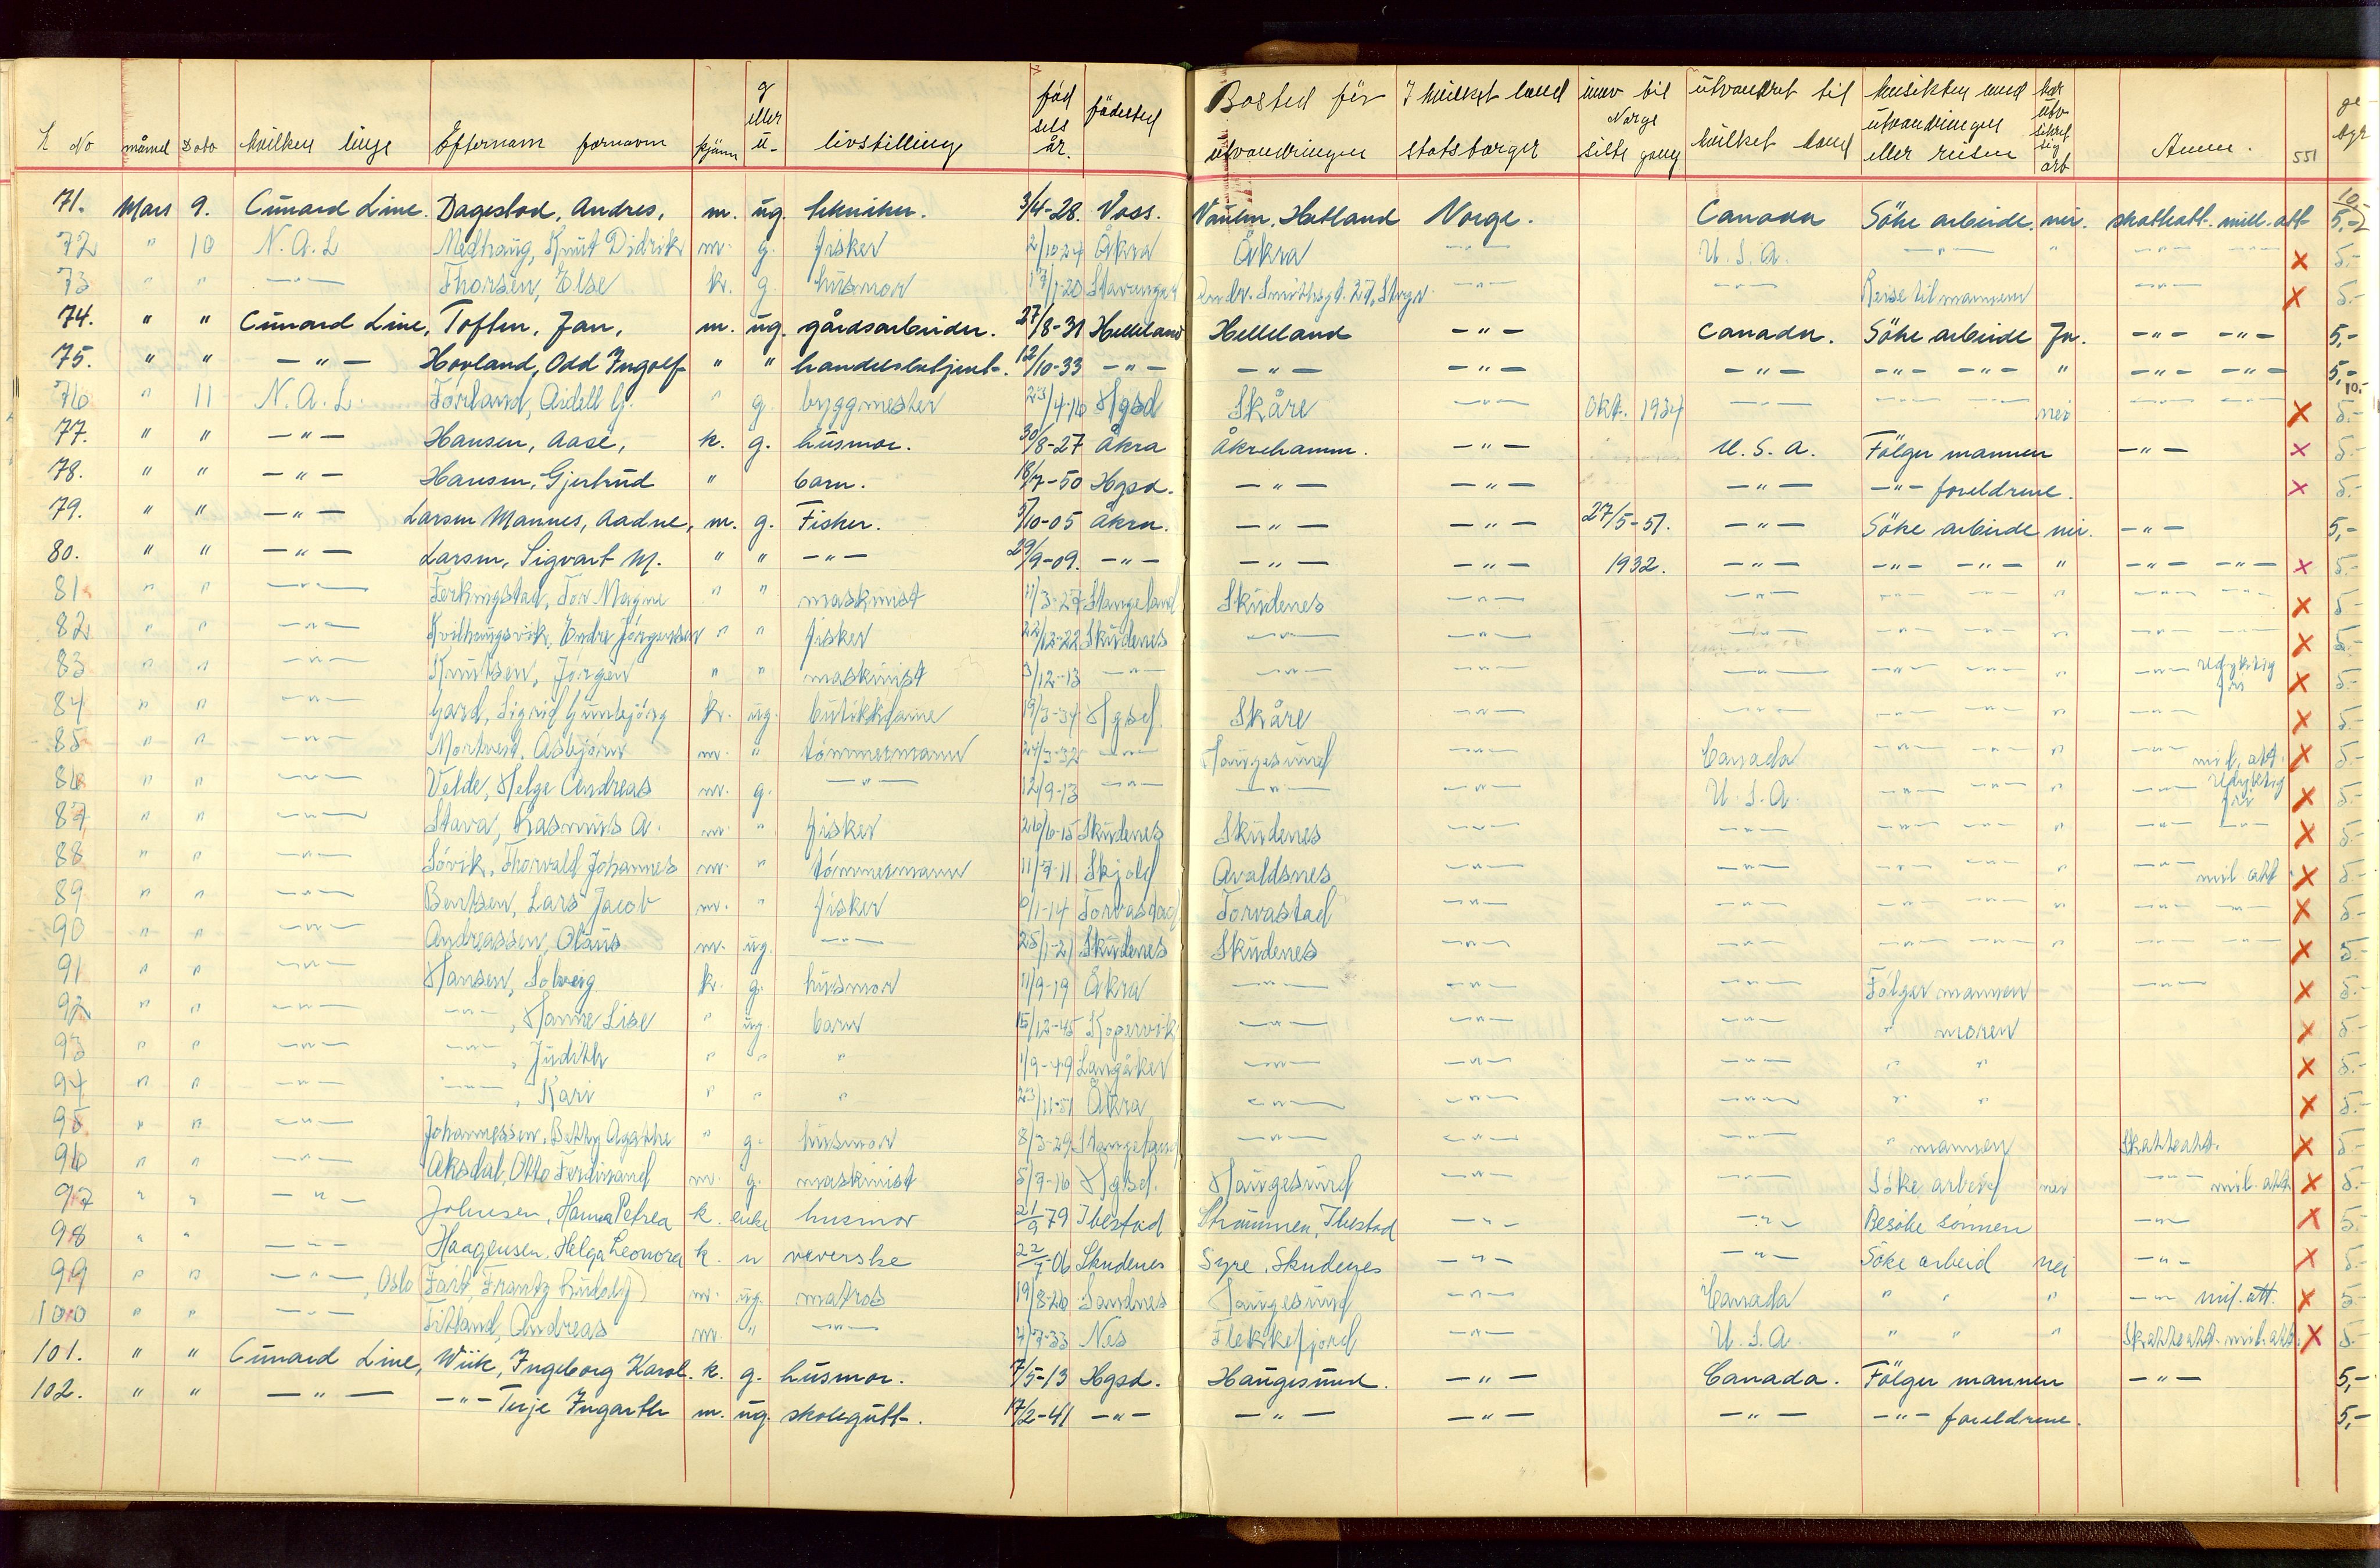 L No måned Dato Hvilken linje Efternavn fornavn kjønn g eller u- livstilling fødselsår. fødested Bosted før utvandringen I hvilket land statsborger innv til Norge siste gang utvandret til hvilket land hensikten med utvandringen eller reisen har utv sikret sig arb Anm. 551 gebyr
71. Mars 9. Cunard Line. Dagestad, Andres, m. ug. tekniker. 3/4-28. Voss. Hetland Norge. Canada Söke arbeide. nei. skatteatt. mill. att 5,-
72 " 10 N.A.L Medhaug, Knut Didrik m. g. fisker 2/10-24 Åkra Åkra -"- U.S.A. -"- " -"- -"- x 5.-
73 " " -"- Thorsen, Else k. g. husmor 17/1-20 Stavanger Smithsgt. 27, Stvgr. -"- -"- Reise til mannen -"- x 5.-
74. " " Cunard Line, Toften, Jan, m. ug. gårdsarbeider. 27/8-31 Helleland Helleland -"- Canada. Söke arbeide Ja. -"- -"- 5,-
75. " " -"- Hovland, Odd Ingolf " " handelsbetjent. 12/10-33 -"- -"- -"- -"- -"- -"- " -"- -"- 5,-
76 " 11 N.A.L. Förland, Aidell G. " g. byggmester 23/4-16 Hgsd Skåre -"- Okt. 1934 -"- -"- -"- nei -"- -"- x 5.-
77. " " -"- Hansen, Aase, k. g. husmor. 30/8-27 Åkra Åkrehamn. -"- U.S.A. Fölger mannen -"- x 5.-
78. " " -"- Hansen, Gjertrud " barn. 18/7-50 Hgsd. -"- -"- -"- -"- foreldrene. x 5.-
79. " " -"- Larsen Mannes, Aadne, m. g. Fisker. 3/10-05 Åkra. -"- -"- 27/5-51. -"- Söke arbeide nei. -"- 5,-
80. " " -"- Larsen, Sigvart M. " " -"- 29/9-09. -"- -"- -"- 1932. -"- -"- -"- " -"- -"- x 5.-
81 " " -"- Ferkingstad, Tor Magne " " maskinist 11/3-27 Stangeland Skudenes -"- -"- -"- -"- " -"- -"- x 5.-
82 " " -"- Kvilhaugsvik, Endre Jörgensen " " fisker 22/12-22 Skudenes -"- -"- -"- -"- -"- " -"- -"- x 5.-
83 " " -"- Knutsen, Jörgen " " maskinist 3/12-13 -"- -"- -"- -"- -"- -"- " -"- Udyktig x 5.-
84 " " -"- Gard, Sigrid Gunbjörg k. ug. butikkdame 19/3-34 Hgsd. Skåre -"- -"- -"- -"- " -"- x 5.-
85 " " -"- Mortveit, Asbjörn m. " tömmermann 24/3-32 -"- Haugesund -"- Canada -"- -"- " -"- mil. att. x 5.-
86 " " -"- Velde, Helge Andreas m. g. -"- 12/9-13 -"- -"- -"- U.S.A. -"- -"- " -"- Udyktig x 5.-
87 " " -"- Stava, Rasmus A. m. " fisker 26/6-15 Skudenes Skudenes -"- -"- -"- -"- " -"- -"- x 5.-
88 " " -"- Sövik, Thorvald Johannes m. " tömmermann 11/7-11 Skjold Avaldsnes -"- -"- -"- -"- " -"- mil att x 5.-
89 " " -"- Bentsen, Lars Jacob m. " fisker 6/1-14 Torvastad Torvastad -"- -"- -"- -"- " -"- -"- x 5.-
90 " " -"- Andreassen, Olaus m. ug. -"- 25/1-21 Skudenes Skudenes -"- -"- -"- -"- " -"- -"- x 5.-
91 " " -"- Hansen, Solveig k. g. husmor 11/9-19 Åkra -"- -"- -"- Fölger mannen -"- x 5.-
92 " " -"- -"-, Hanne Lise " ug. barn 15/12-45 Kopervik -"- -"- -"- " moren x 5.-
93 " " -"- -"-, Judith " " " 1/9-49 Langåker -"- -"- -"- " " x 5.-
94 " " -"- -"-, Kari " " " 23/11-51 Åkra -"- -"- -"- " " x 5.-
95 " " -"- Johannessen, Betty Agathe " g. husmor 8/3-29 Stangeland -"- -"- -"- " mannen Skatteatt. x 5.-
96 " " -"- Aksdal, Otto Ferdinand m. g. maskinist 5/7-16 Hgsd. Haugesund -"- -"- Söke arbeid nei -"- mil. att x 5.-
97 " " -"- Johnsen, Hanna Petrea k. enke husmor 21/9 79 Ibestad Ibestad -"- -"- Besöke sönnen -"- x 5.-
98 " " -"- Haagensen, Helga Leonora k. u veverske 22/1-06 Skudenes Syre, Skudenes -"- -"- Söke arbeid nei -"- x 5.-
99 " " -"-, Oslo Frantz Rudolf m. ug. matros 19/8-26 Sandnes Haugesund -"- Canada " " " -"- mil. att. x 5.-
100 " " -"- Titland, Andreas m. " -"- 4/7-33 Nes Flekkefjord -"- U.S.A. " " " Skatteatt. mil. att. x 5.-
101. " " Cunard Line, Wiik, Ingeborg Karol. k. g. husmor. 7/5-13 Hgsd. Haugesund. -"- Canada. Fölger mannen -"- 5,-
102. " " -"- -"- Terje Ingarth m. ug. skolegutt. 17/2-41 -"- -"- -"- -"- -"- foreldrene. 5,-